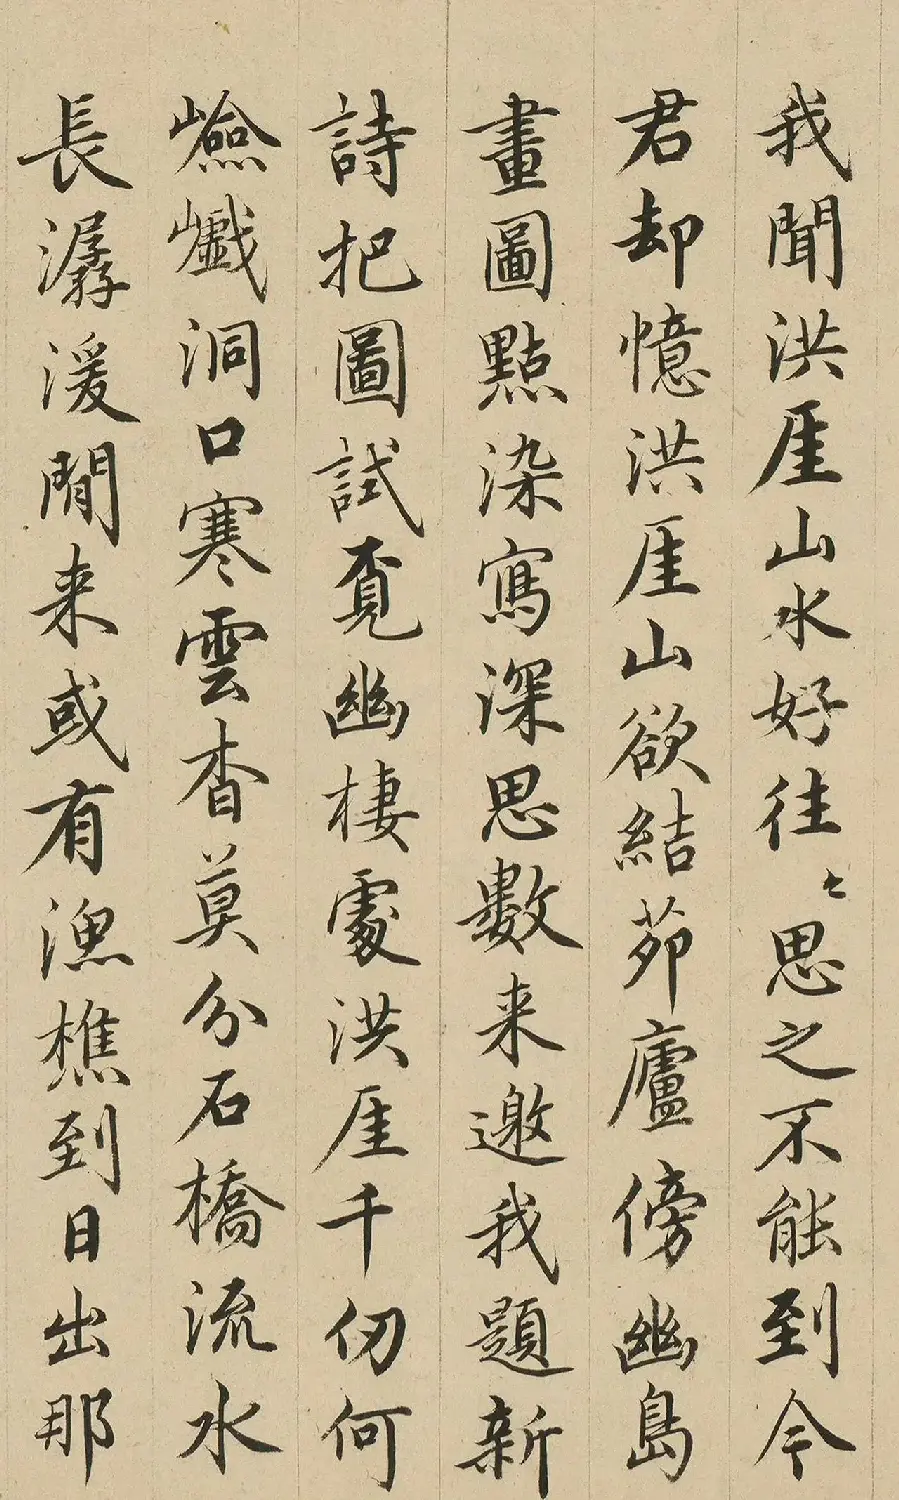 我聞洪厓山水好往〻思之不能到今
君却憶洪厓山欲結茆廬傍幽島
畫圖點染寫深思數来邀我題新
詩把圖試覔幽棲處洪厓千仞何
嶮巇洞口寒雲杳莫分石橋流水
長潺湲閒来或有漁樵到日出那